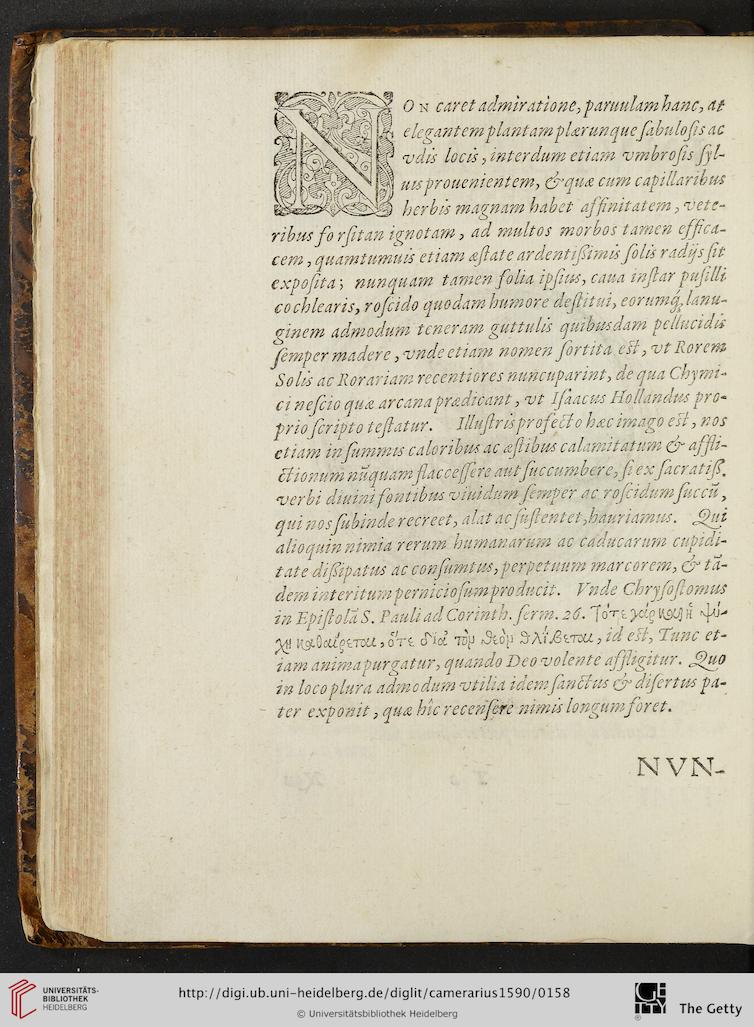 NON caret admiratione, paruulam hanc, at
elegantem plantam plærunque ſabuloſis ac
vdis locis, interdum etiam vmbroſis ſyl-
uis prouenientem, & quæ cum capillaribus
herbis magnam habet affinitatem, vete-
ribus forſitan ignotam, ad multos morbos tamen effica-
cem, quamtumuis etiam æſtate ardentiſſimis ſolis radijs ſit
expoſita; nunquam tamen folia ipſius, caua inſtar puſilli
cochlearis, roſcido quodam humore deſtitui, eorumq́, lanu-
ginem admodum teneram guttulis quibusdam pellucidis
ſemper madere, vnde etiam nomen ſortita eſt, vt Rorem
Solis ac Rorariam recentiores nuncuparint, de qua Chymi-
ci neſcio quæ arcana prædicant, vt Iſaacus Hollandus pro-
prio ſcripto teſtatur. Illuſtris profecto hæc imago eſt, nos
etiam in ſummis caloribus ac æſtibus calamitatum & affli-
ctionum nũquam flacceſſere aut ſuccumbere, ſi ex ſacratiſſ.
verbi diuini fontibus viuidum ſemper ac roſcidum ſuccũ,
qui nos ſubinde recreet, alat ac ſuſtentet, hauriamus. Qui
alioquin nimia rerum humanarum ac caducarum cupidi-
tate diſſipatus ac conſumtus, perpetuum marcorem, & tã-
dem interitum pernicioſum producit. Vnde Chryſoſtomus
in Epiſtolã S. Pauli ad Corinth. ſerm. 26. Τότε γάρ καὶ ἡ ψυ-
χὴ καθαίρεται, ὅτε διὰ τὸν θεὸν θλίβεται, id eſt, Tunc et-
iam anima purgatur, quando Deo volente affligitur. Quo
in loco plura admodum vtilia idem ſanctus & diſertus pa-
ter exponit, quæ hîc recenſere nimis longum foret.
NVN-
UNIVERSITÄTS-
BIBLIOTHEK
HEIDELBERG
http://digi.ub.uni-heidelberg.de/diglit/camerarius1590/0158
© Universitätsbibliothek Heidelberg
The Getty